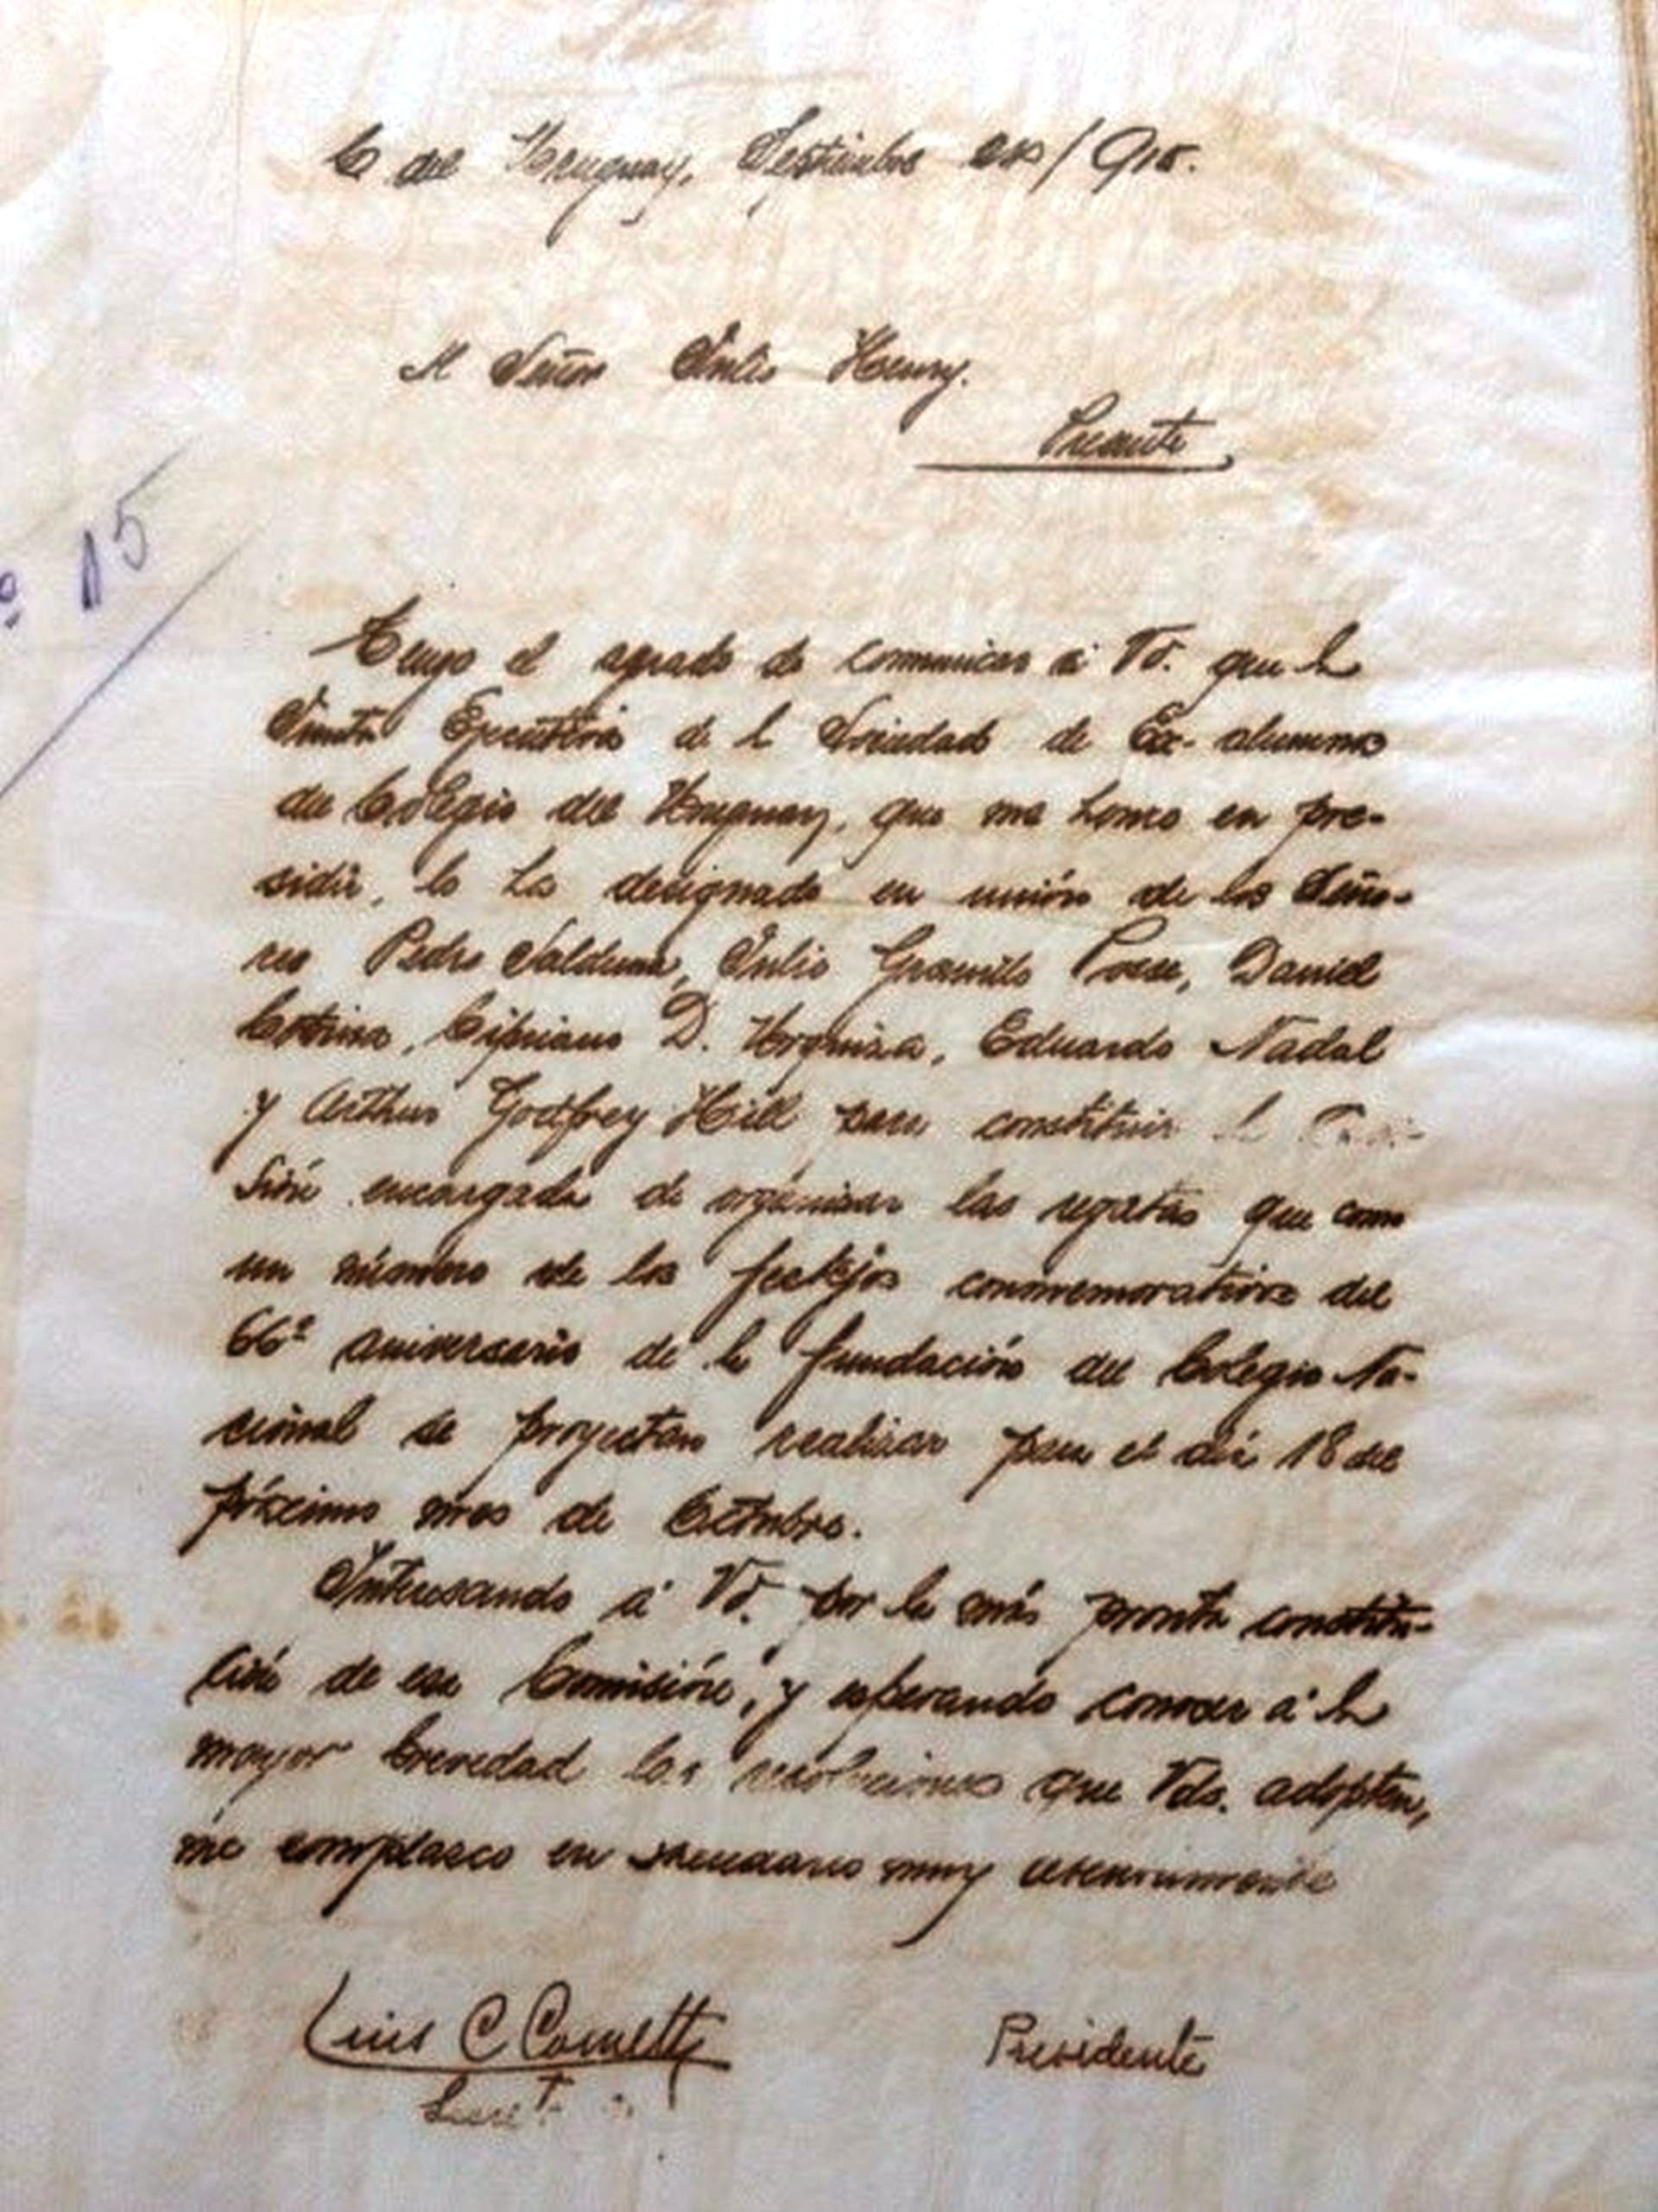 C del Uruguay, Septiembre /915.
Al Señor Julio Henry.
Presente
º 15
Tengo el agrado de comunicar á Vd. que la
Junta Ejecutiva de la Sociedad de Ex-alumnos
del Colegio del Uruguay, que me honro en pre-
sidir, lo ha designado en unión de los Seño-
res Pedro Salduna, Julio Gramilo Posse, Daniel
Cipriano D. Urquiza, Eduardo Nadal
y Arthur Godfrey Hill para constituir la
sión encargada de organizar las regatas que como
un número de los festejos conmemorativos del
66º aniversario de la fundación del Colegio Na-
cional se proyectan realizar para el día 18 del
próximo mes de Octubre.
Interesando á Vd. por la más pronta constitu-
ción de esa Comisión, y esperando conocer á la
mayor brevedad las resoluciones que Vds. adopten,
me complazco en muy atentamente
Luis C
Presidente